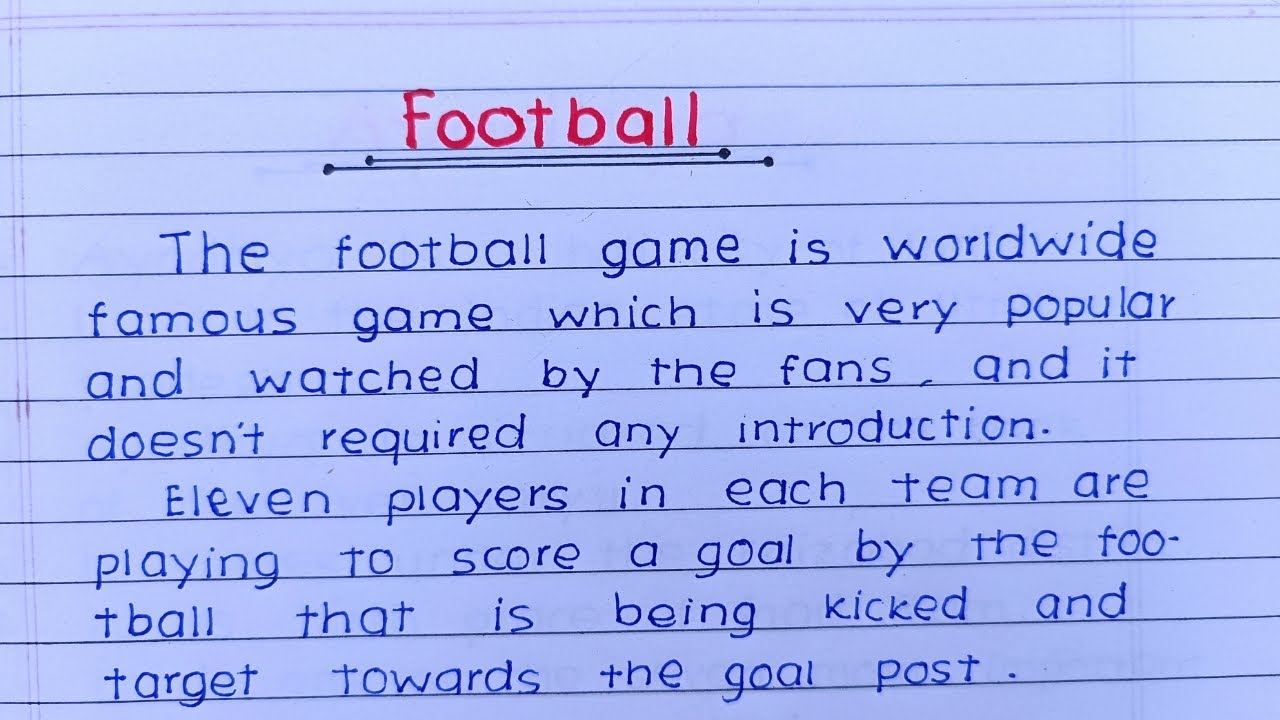 Football
The football game is worldwide
famous game which is very popular
and watched by the fans, and it
doesn't required any introduction.
Eleven players in each team are
playing to score a goal by the foo-
tball that is being kicked and
target towards the goal post.